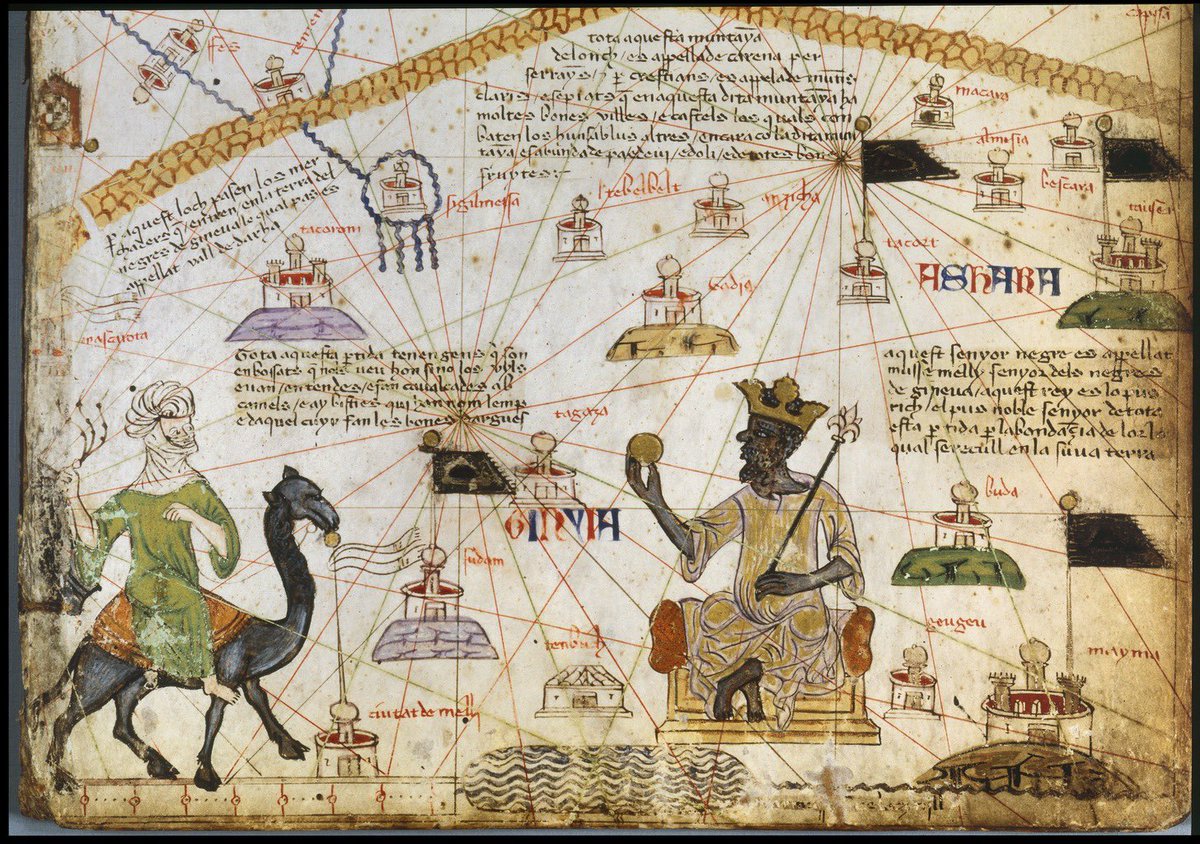 fes
tota aquesta muntaỹa
de lonch / es appellade carena per
serrayns / z p̱ crestians / es appelade muntis
claris / e sepiats q̃ en aquesta dita muntaỹa ha
moltes bones villes / e castels los quals con
baten los huns ab lus altres / encara co la dita mun
taỹa es abunda de pa e de vi / e doli / e de totes bones
fruytes :-
macara
almsia
bescara
p̱ aquest loch pasen los mer
chaders q̃ entren en la terra del
negres de gineua / lo qual pas es
apellat vall de darha
sigilmessa
tacorom
tacort
ASHARA
tota aquesta p̱tida tenen gens q̃ son
enbosats q̃ nols veu hom sino los uyls
e uan / en tendes / e fan caualcades ab
camels / e ay bisties qui han nom lemp
e daquel cuyr fan les bones dargues
tagaza
aquest senyor negre es apellat
musse melly / senyor dels negres
de gineua / aquest rey es lo pus
rich / el pus noble senyor de tota
esta p̱tida p̱ labondançia de lor lo
qual se recull en la suua terra
buda
GINYIA
sudam
tenbuch
geugeu
mayma
ciutat de melli